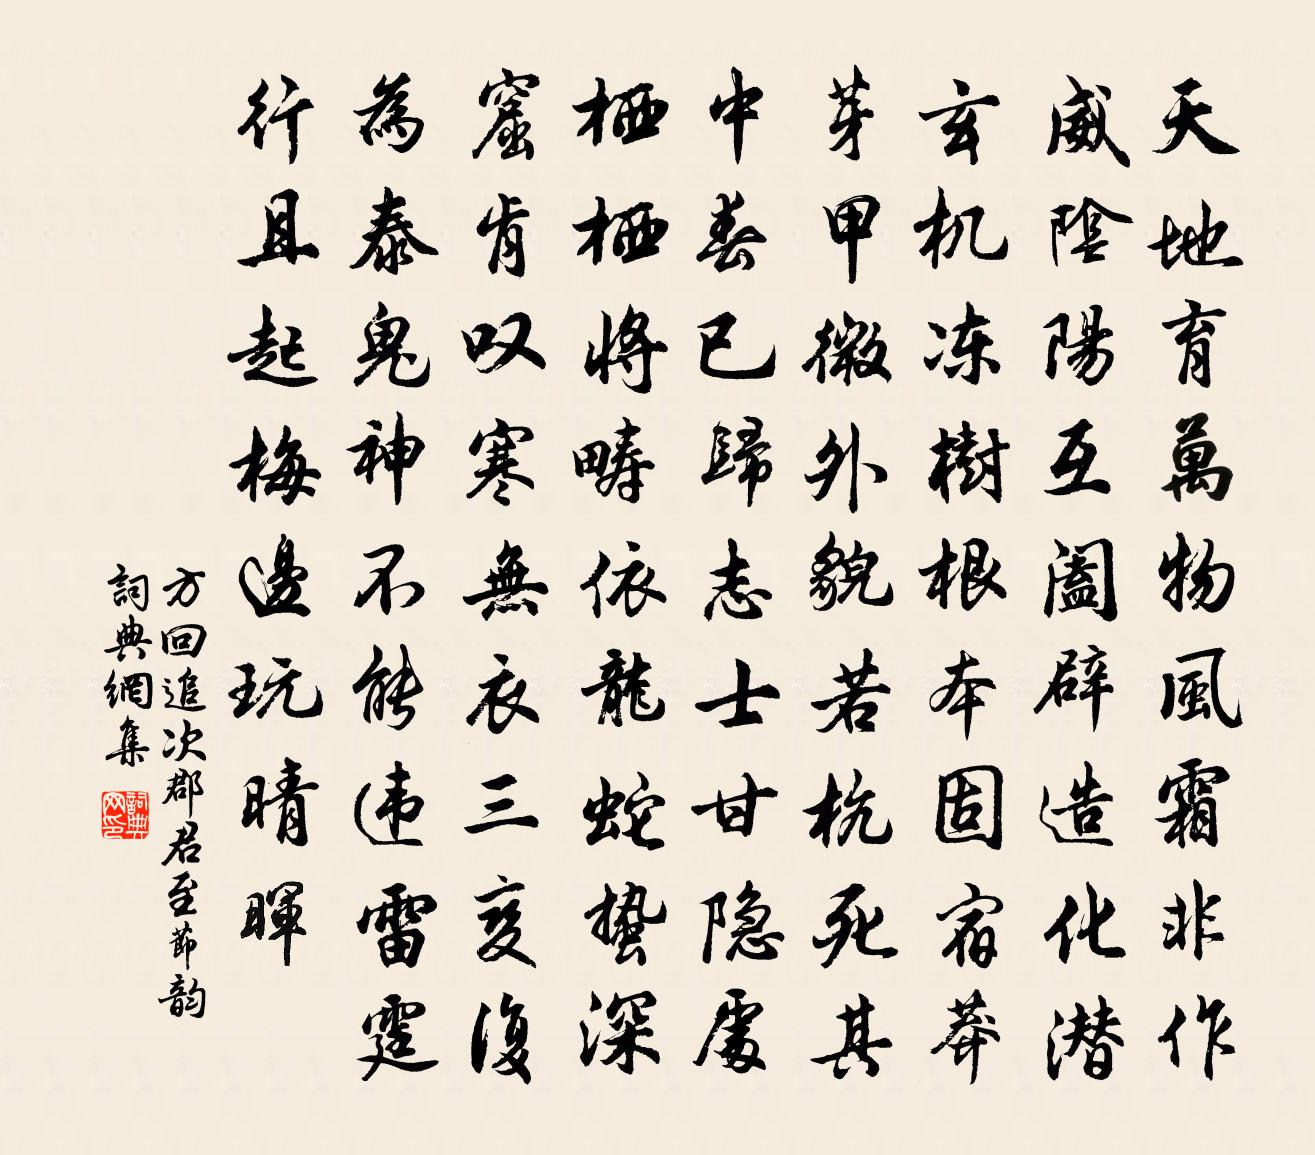 天地育萬物風霜非作
威陰陽互阖辟造化潜
玄机冻樹根本固宿莽
芽甲微外貌若枕死其
中春已歸志士甘隐處
栖栖將疇依龍蛇蛰深
窟肯叹寒無衣三变復
為泰鬼神不能违雷霆
行且起梅邊玩晴暉
方回追次郡君至節韵
詞典網集
詞典网印